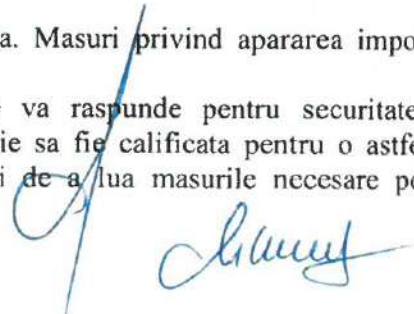 a. Masuri privind apararea impo
va raspunde pentru securitate
ie sa fie calificata pentru o astfe
i de a lua masurile necesare pe